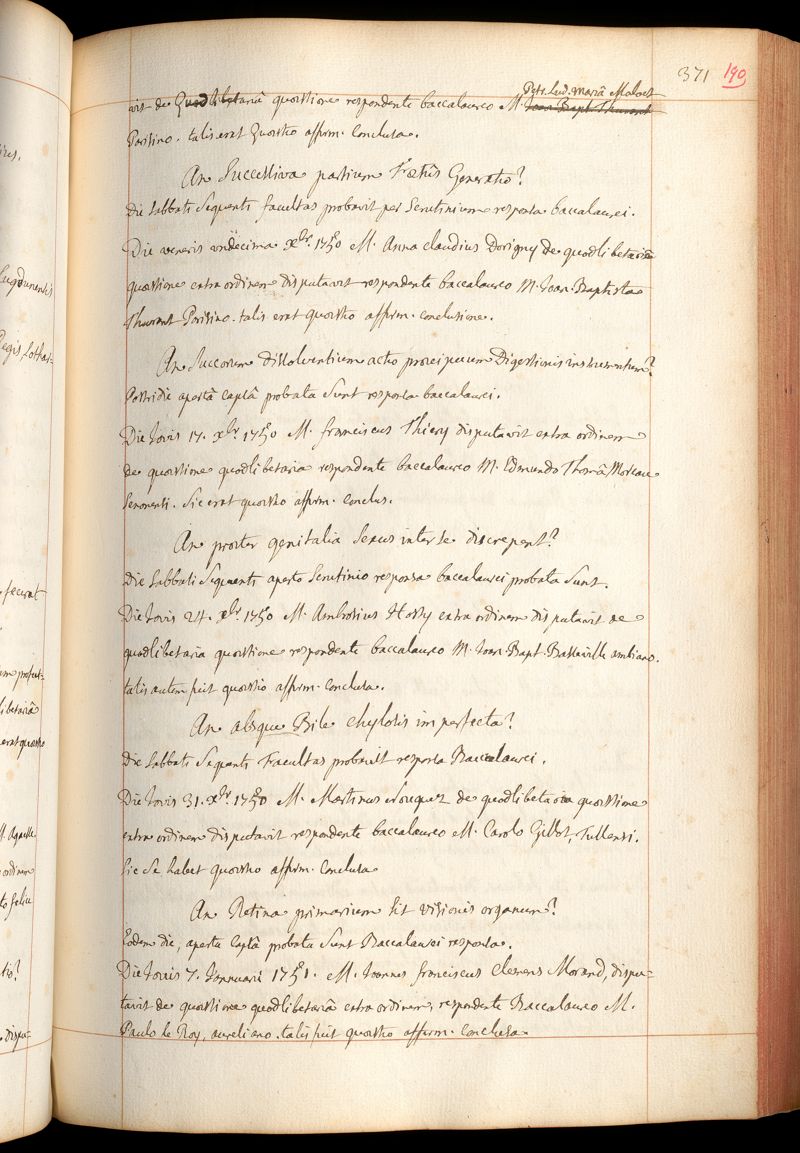 371 190
Petr. Lud. Mariâ Maloet
vit de Quodlibetariâ quæstione respondente baccalaureo M. Joan Bapt Thurant
Parisino. talis erat Quæstio affirm. conclusa.
An Successiva partium Fœtûs Generatio?
Die Sabbati Sequenti facultas probavit per Scrutinium responsa baccalaurei.
Die veneris undecima xbr. 1750 M. Anna Claudius Dorigny de quodlibetariâ
quæstione extra ordinem disputavit respondente baccalaureo M. Joan. Baptista
Thurant Parisino. talis erat quæstio affirm. conclusione.
An Succorum dissolventium actio præcipuum Digestionis instrumentum?
Postridie apertâ capsâ probata sunt responsa baccalaurei.
Die Jovis 17. xbr 1750 M. franciscus Thiery disputavit extra ordinem
de quæstione quodlibetaria respondente baccalaureo M. Edmundo Thomâ Moreau
Senonensi. Sic erat quæstio affirm. conclus.
An præter genitalia Sexus inter se discrepent?
Die Sabbati Sequenti aperto Scrutinio responsa baccalaurei probata sunt.
Die Jovis 24. xbr. 1750 M. Ambrosius Hosty extra ordinem disputavit de
quodlibetaria quæstione respondente baccalaureo M. Joan. Bapt. Basseville ambiano.
talis autem fuit quæstio affirm. conclusa.
An absque Bile chylosis imperfecta?
Die Sabbati Sequenti Facultas probavit responsa Baccalaurei.
Die Jovis 31. xbr. 1750 M. Martinus Nouguez de quodlibetaria quæstione
extra ordinem disputavit respondente baccalaureo M. Carolo Gillot, Tullensi.
Sic se habet quæstio affirm. conclusa
An Retina primarium sit visionis organum?
Eodem die, aperta capsâ probata sunt Baccalaurei responsa.
Die Jovis 7. Januarii 1751. M. Joannes franciscus Clemens Morand, dispu-
tavit de quæstione quodlibetariâ extra ordinem, respondente Baccalaureo M.
Paulo le Roy, aureliano. talis fuit quæstio affirm. conclusa.